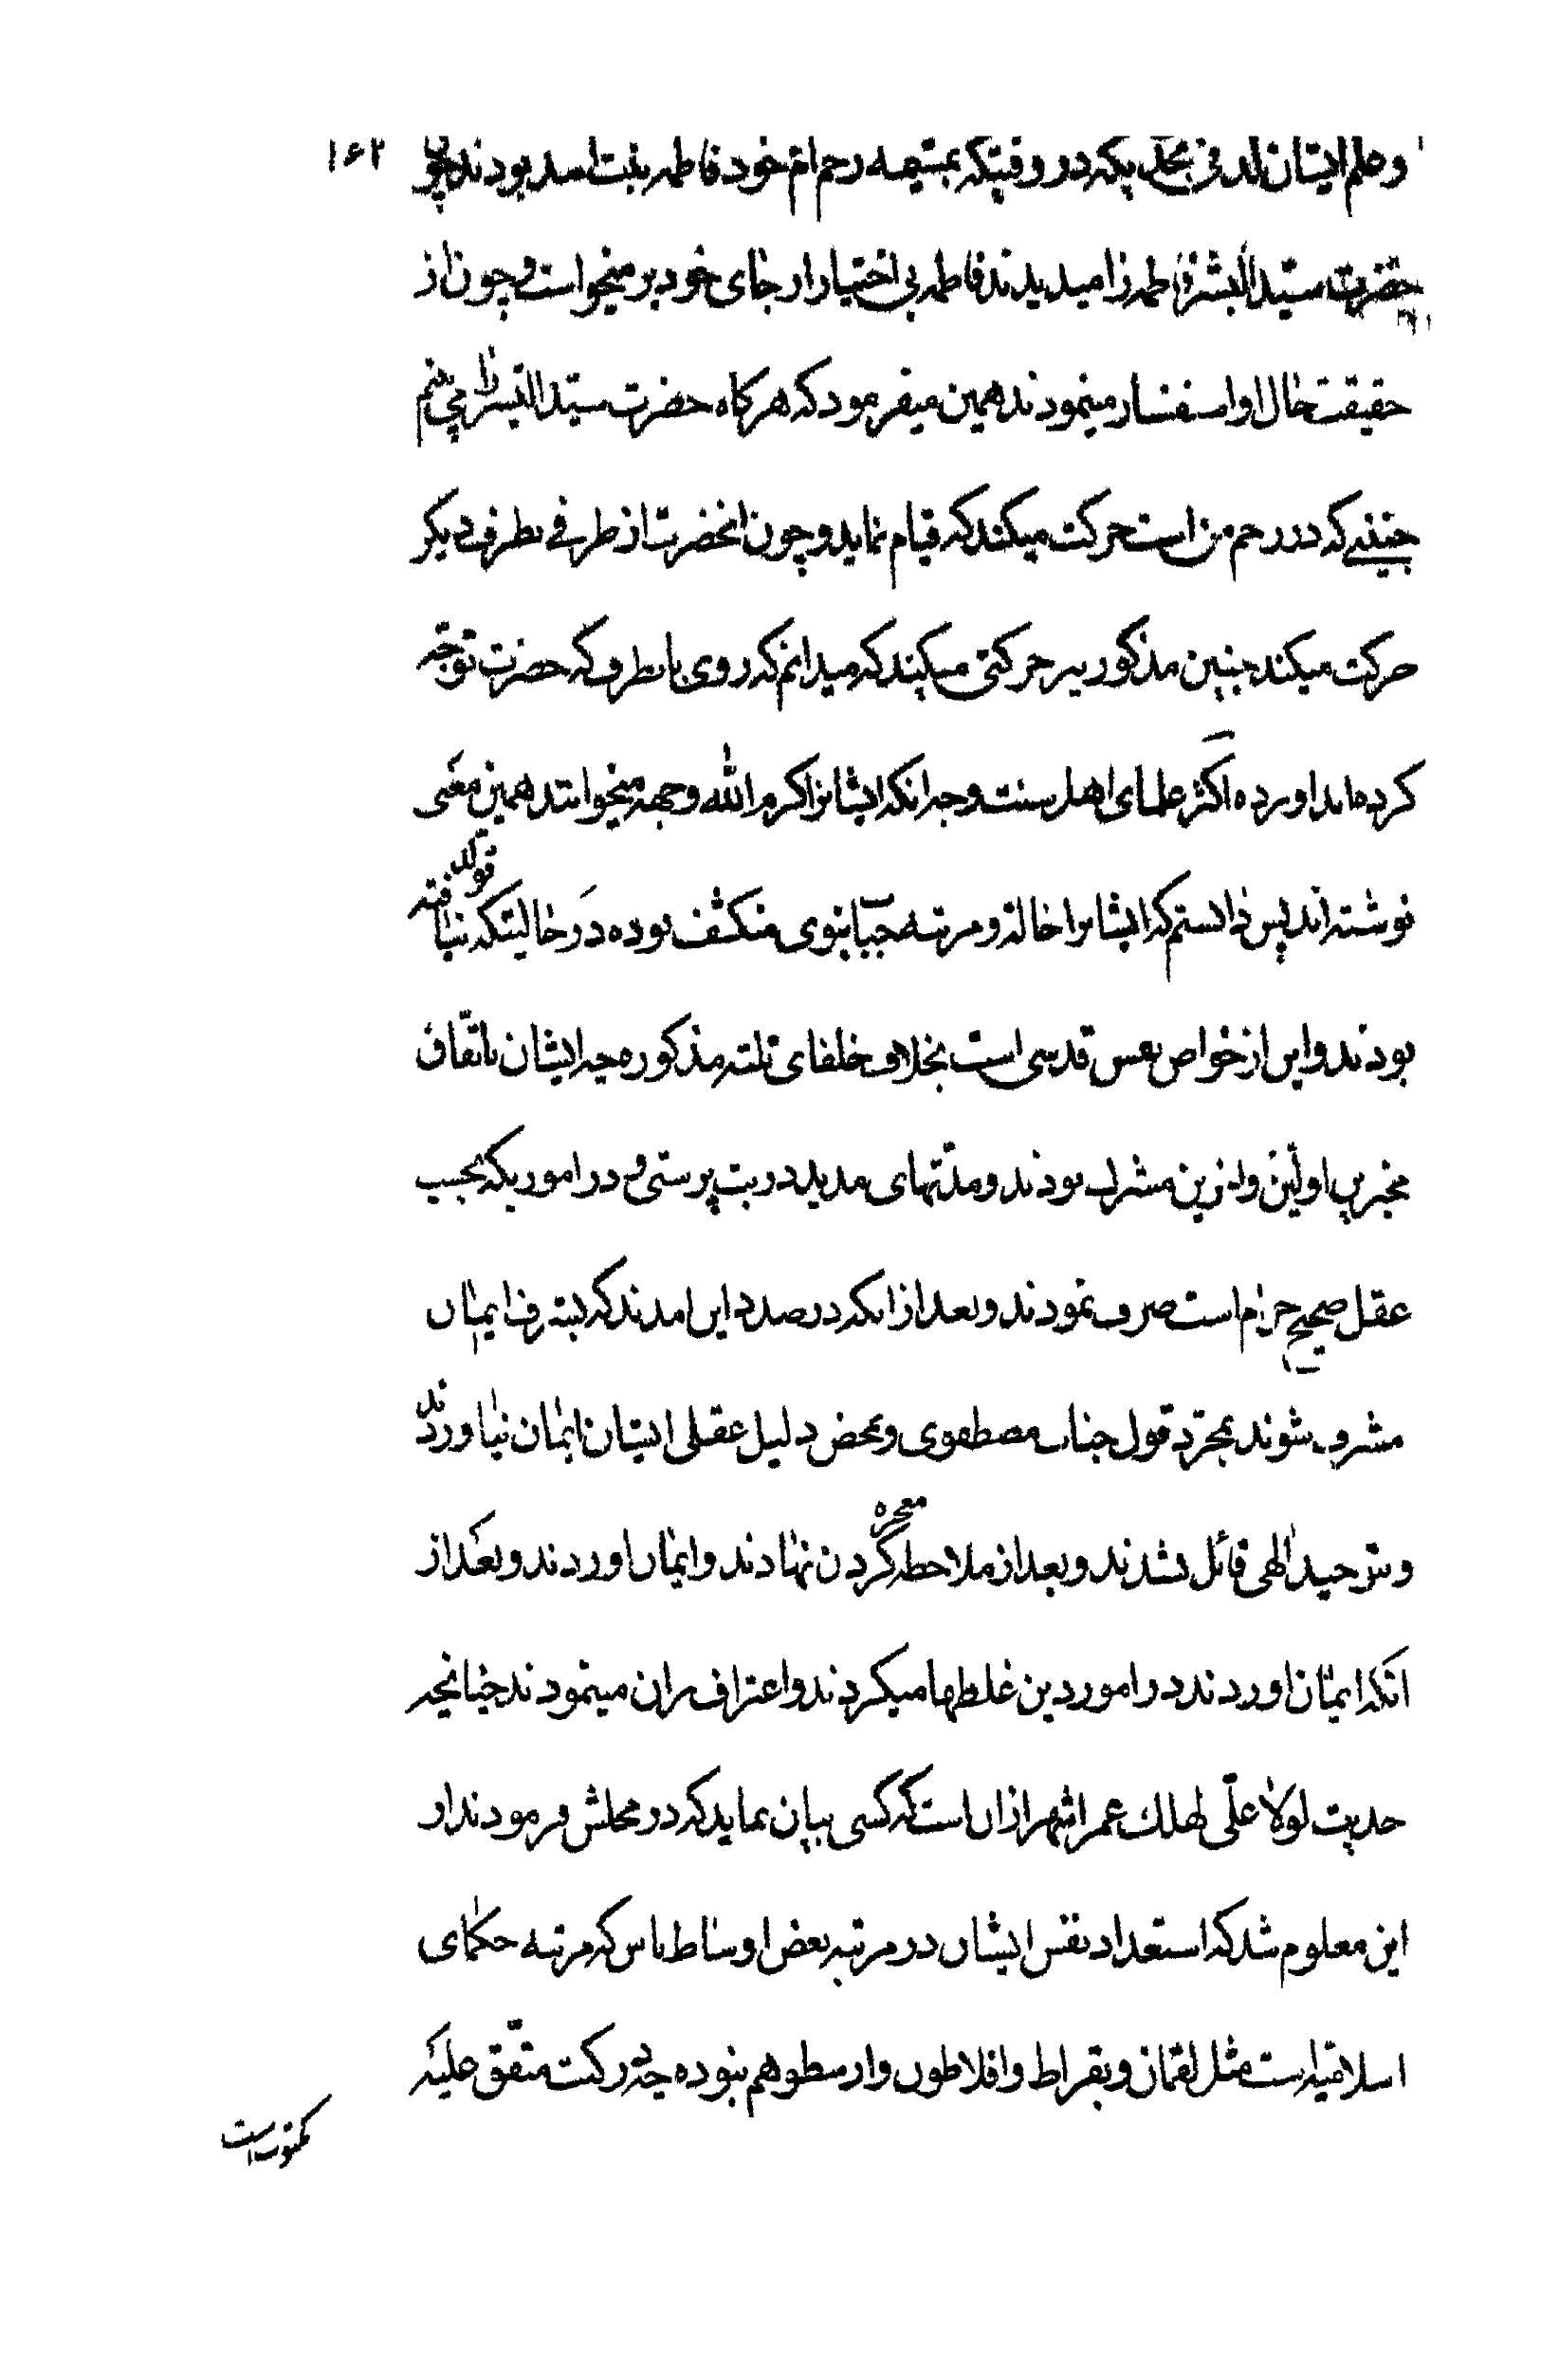 وعلم ایشان لدنی بحدیکه در وقتیکه بمشیمه رحم ام خود فاطمه بنت اسد بودند چون ۱۶۲
حضرت سید البشر فاطمه را میدیدند فاطمه بی اختیار از جای خود بر میخواست و چون از
حقیقت حال او استفسار مینمودند همین میفرمود که هرکاه حضرت سید البشر را می بینم
جنینی که در رحم من است حرکت میکند که قیام نماید و چون انحضرت از طرفی بطرف دیکر
حرکت میکند جنین مذکور نیز حرکتی میکند که میدانم که روی بانطرف که حضرت توجه
کرده اند اورده اکثر علمای اهل سنت وجه انکه ایشانرا کرم الله وجهه میخوانند همین معنی
نوشته اند پس دانستم که ایشانرا حالة و مرتبه جناب نبوی منکشف بوده در حالیتکه تولد نیافته
بودند و این از خواص نفس قدسی است بخلاف خلفای ثلثه مذکوره چه ایشان باتفاق
مخبرین اولین واخرین مشرک بودند و مدتهای مدید در بت پرستی و در اموریکه بحسب
عقل صحیح حرام است صرف نمودند و بعد از انکه در صدد این امدند که بشرف ایمان
مشرف شوند بمجرد قول جناب مصطفوی و بمحض دلیل عقلی ایشان ایمان نیاوردند
و بتوحید الهی قائل نشدند و بعد از ملاحظه معجزه کردن نهادند و ایمان اوردند و بعد از
انکه ایمان اوردند در امور دین غلطها میکردند و اعتراف بران مینمودند چنانچه
حدیث لولا علی لهلک عمر اشهر ازان است که کسی بیان نماید که در محلش فرمودند از
این معلوم شد که استعداد نفس ایشان در مرتبه بعض اوساط ناس که مرتبه حکمای
اسلافیه است مثل لقمان و بقراط و افلاطون و ارسطو هم نبوده چه در کتب متفق علیه
مکتوب است